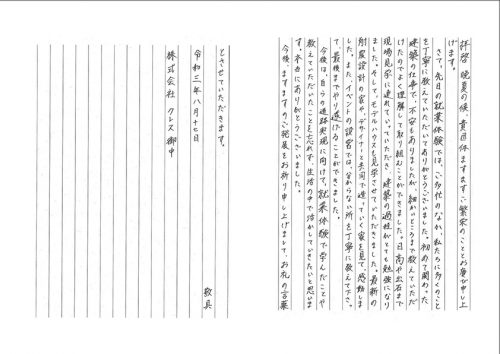 拝啓　晩夏の候、貴団体ますますご繁栄のこととお慶び申し上
げます。
さて、先日の就業体験では、ご多忙のなか、私たちに多くのこと
を丁寧に教えていただいてありがとうございました。初めて関わった
建築の仕事で、不安もありましたが、細かいところまで教えていただ
けたのでよく理解して取り組むことができました。日高や出石まで
現場見学に連れていっていただき、建築の過程がとても勉強になり
ました。そして、モデルハウスも見学させていただきました。最新の
耐震設計の家や、デザイナーと共同で造っていく家を見て、感動しま
した。また、イベントの設営では、分からない所を丁寧に教えて下さっ
て、最後までやり遂げることができました。
今後は、自らの進路実現に向けて、就業体験で学んだことや
教えていただいたことを忘れず、生活の中で活かしていきたいと思いま
す。本当にありがとうございました。
今後、ますますのご発展をお祈り申し上げまして、お礼の言葉
とさせていただきます。
敬具
令和三年八月十七日
株式会社　クレス御中